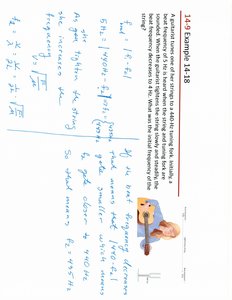 14-9 Example 14-18
A guitarist tunes one of her strings to a 440-Hz tuning fork. Initially, a
beat frequency of 5 Hz is heard when the string and tuning fork are
sounded. When the guitarist tightens the string slowly and steadily, the
beat frequency decreases to 4 Hz. What was the initial frequency of the
string?
5 Hz = |440Hz - f₂|
As she tightens the string
she increases the
frequency
If the beat frequency decreases
that means that |440-f₂|
gets smaller which means
f₂ gets closer to 440Hz
So that means f₂ = 435 Hz